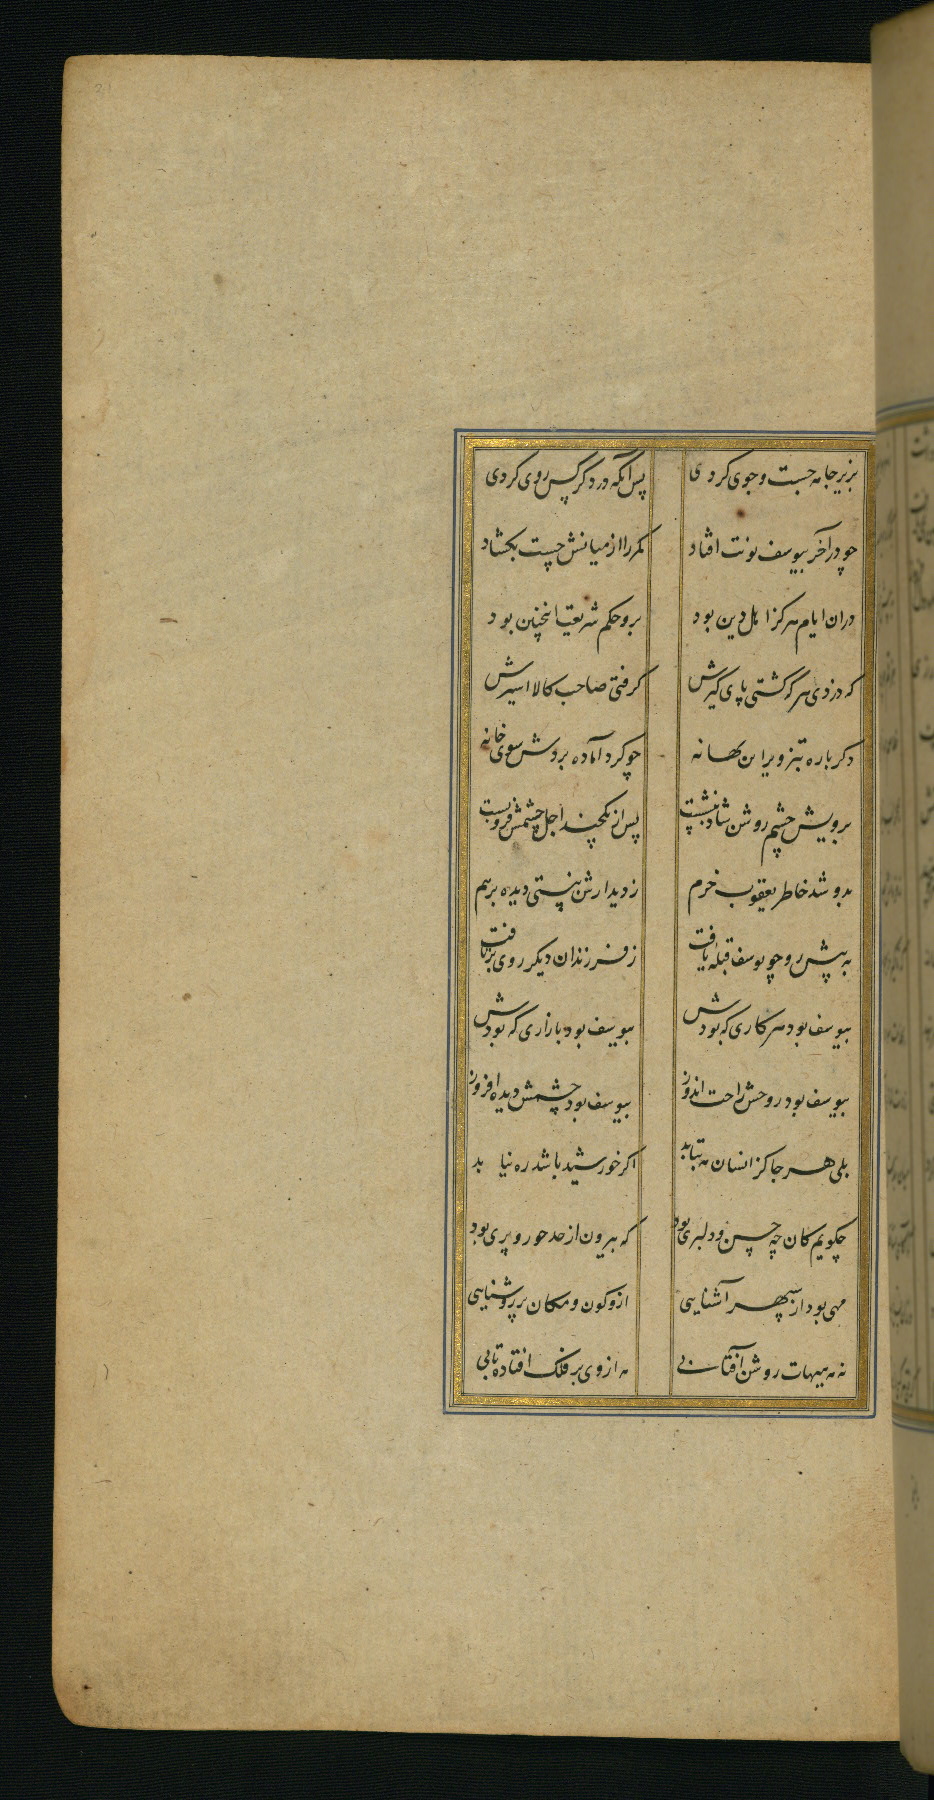 بزیر جامه جست و جوی کردی پس آنگه در دگر کس روی کردی
چو در آخر بیوسف نوبت افتاد کمر را از میانش چست بکشاد
در آن ایام هر کز اهل دین بود برو حکم شریعت اینچنین بود
که دزدی هر که گشتی پای گیرش گرفتی صاحب کالا اسیرش
دگر باره بتزویر این بهانه چو کرد آماده بردش سوی خانه
برویش چشم روشن شاد بنشست پس از یکچند اجل چشمش فروبست
بدو شد خاطر یعقوب خرم ز دیدارش نبستی دیده برهم
به پیش رو چو یوسف قبله یافت ز فرزندان دیگر روی برتافت
بیوسف بود هر کاری که بودش بیوسف بود بازاری که بودش
بیوسف بود روحش راحت اندوز بیوسف بود چشمش دیده افروز
بلی هر جا کز انسان مه بتابد اگر خورشید باشد ره نیابد
چگویم کان چه حسن و دلبری بود که بیرون از حد حور و پری بود
مهی بود از سپهر آشنایی ازو کون و مکان پر روشنایی
نه مه هیهات روشن آفتابی مه از وی بر فلک افتاده تابی